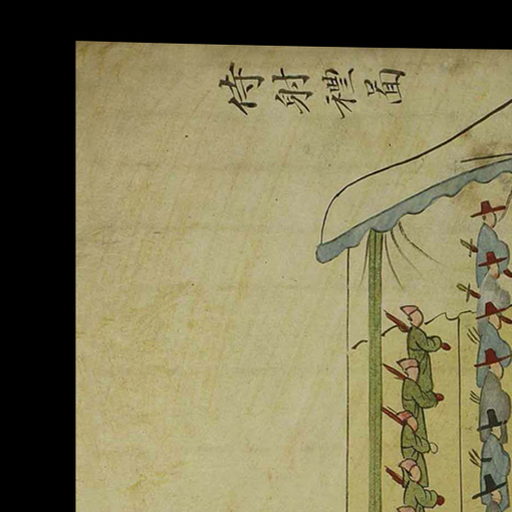 侍射禮圖